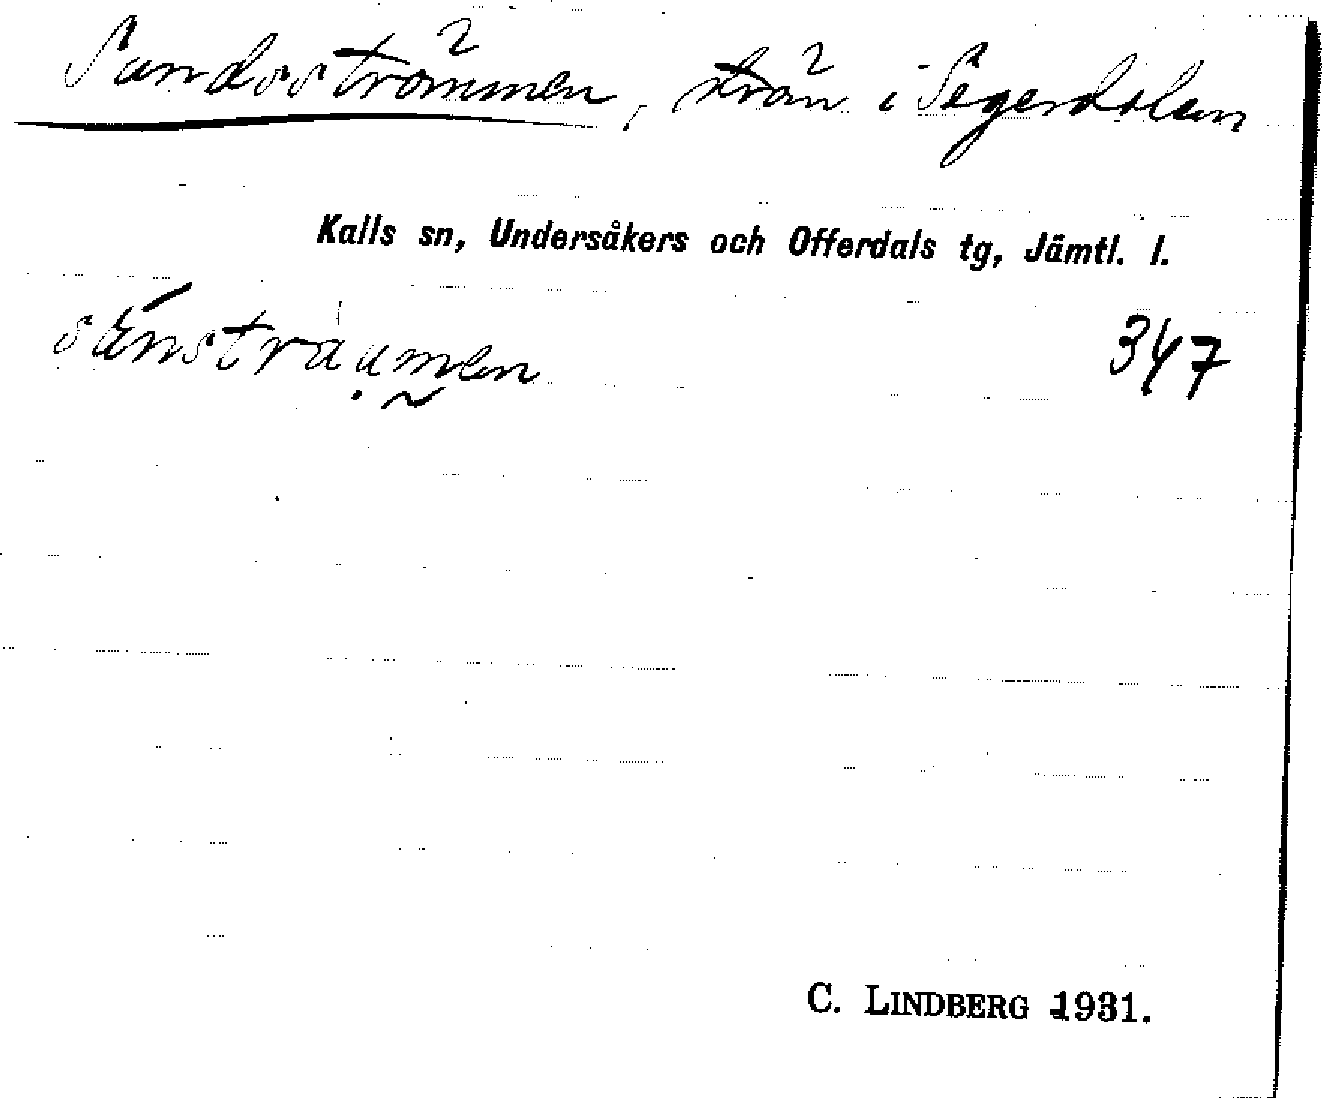 Sundsströmmen, ström i Segerdalen
Kalls sn, Undersåkers och Offerdals tg, Jämtl. l.
347
C. LINDBERG 1931.